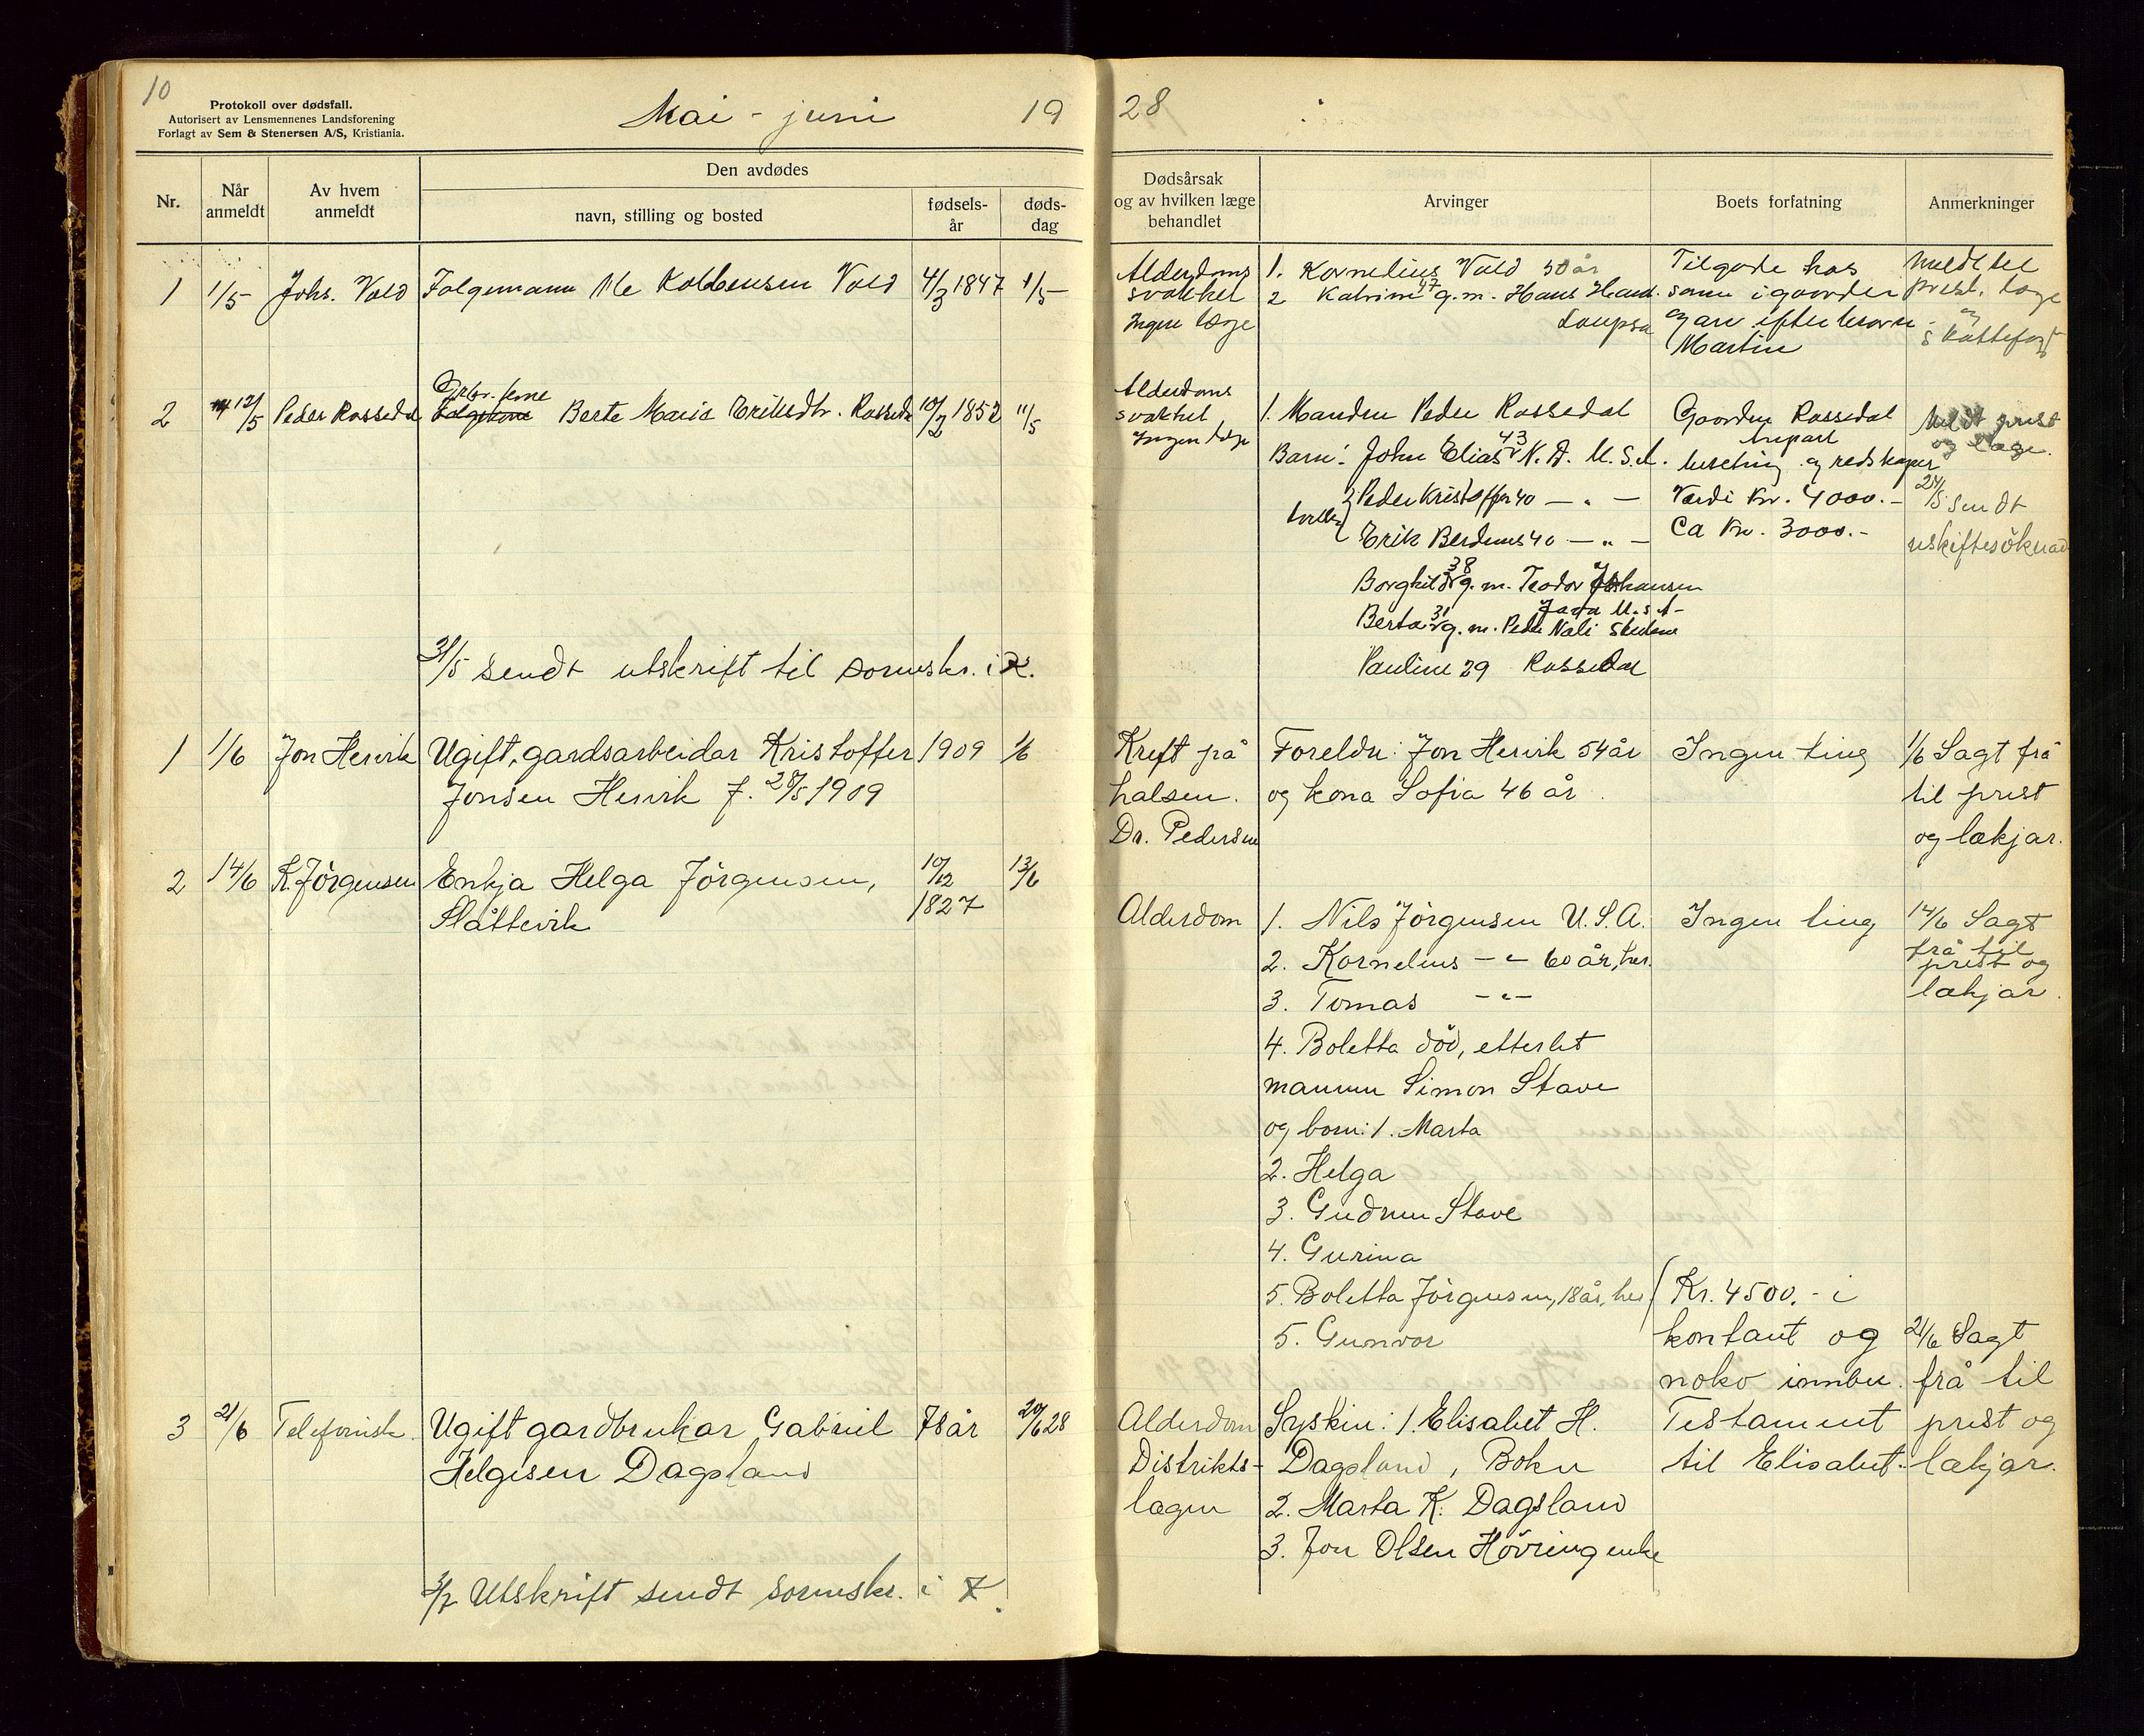 10
Protokoll over dødsfall.
Autorisert av Lensmennenes Landsforening
Forlagt av Sem & Stenersen A/S, Kristiania.
Mai - juni 19 28
Nr.
Når anmeldt
Av hvem anmeldt
Den avdødes
navn, stilling og bosted
fødsels-
år
døds-
dag
Dødsårsak
og av hvilken læge
behandlet
Arvinger
Boets forfatning
Anmerkninger
1 1/5 - Johs. Vold Folgemann Ole Kolbensen Vold 4/3 1847 1/5 -
Alderdoms
svakhet
Ingen læge
1. Kornelius Vold 50 år
2 Katrine 47 g.m. Hans Hand.
Loupsa
Tilgode hos
sønn i gaarden
og arv efter
Martin
Meldt til
prest, læge
og
skattefogd
2 12/5 Peder Rossedal Folgekone Berte Maria Eriksdtr. Rossedal 10/2 1852 11/5
Alderdoms
svakhet
Ingen læge
1. Manden Peder Rossedal
Barn: John Elias 43 N. D. U.S.A.
Peder Kristoffer 40 — " —
Erik Berdines 40 — " —
Borghild 38 g.m. Teodor Johansen
U.S.A-
Berta 31 g.m. Peder Nali
Pauline 29 Rossedal
Gaarden Rossedal
busetning og redskaper
Verdi Kr. 4000.-
Ca Kr. 3000.-
Meldt prest
og læge.
24/5 sendt
uskiftesøknad
31/5 sendt utskrift til sorenskr. i K.
1 1/6 Jon Hervik Ugift, gardsarbeidar Kristoffer 1909 1/6
Jonsen Hervik f. 28/5 1909
Kreft på
halsen.
Dr. Pedersen
Foreldre: Jon Hervik 54 år
og kona Sofia 46 år.
Ingen ting
1/6 Sagt frå
til prest
og lækjar.
2 14/6 K. Jörgensen Enkja Helga Jörgensen, 10/12 13/6
Slåttevik 1827
Alderdom
1. Nils Jörgensen U.S.A.
2. Kornelius — " — 60 år, her.
3. Tomas — " —
4. Boletta död, etterlet
mannen Simon Stave
og born: 1. Marta
2. Helga
3. Gudrun Stave
4. Gurina
5. Boletta Jörgensen, 18 år, her
5. Gunvor
Ingen ting
14/6 Sagt
frå til
prest og
lækjar.
3 21/6 Telefonisk. Ugift gardbrukar Gabriel 78 år 20/6 28
Helgesen Dagsland
Alderdom
Distrikts-
lægen
Syskin: 1. Elisabet H.
Dagsland, Bokn
2. Marta K. Dagsland
3. Jon Olsen Hövring enke
Kr. 4500.- i
kontant og
noko innbu.
Testament
til Elisabet.
21/6 Sagt
frå til
prest og
lækjar.
3/7 Utskrift sendt sorenskr. i K.